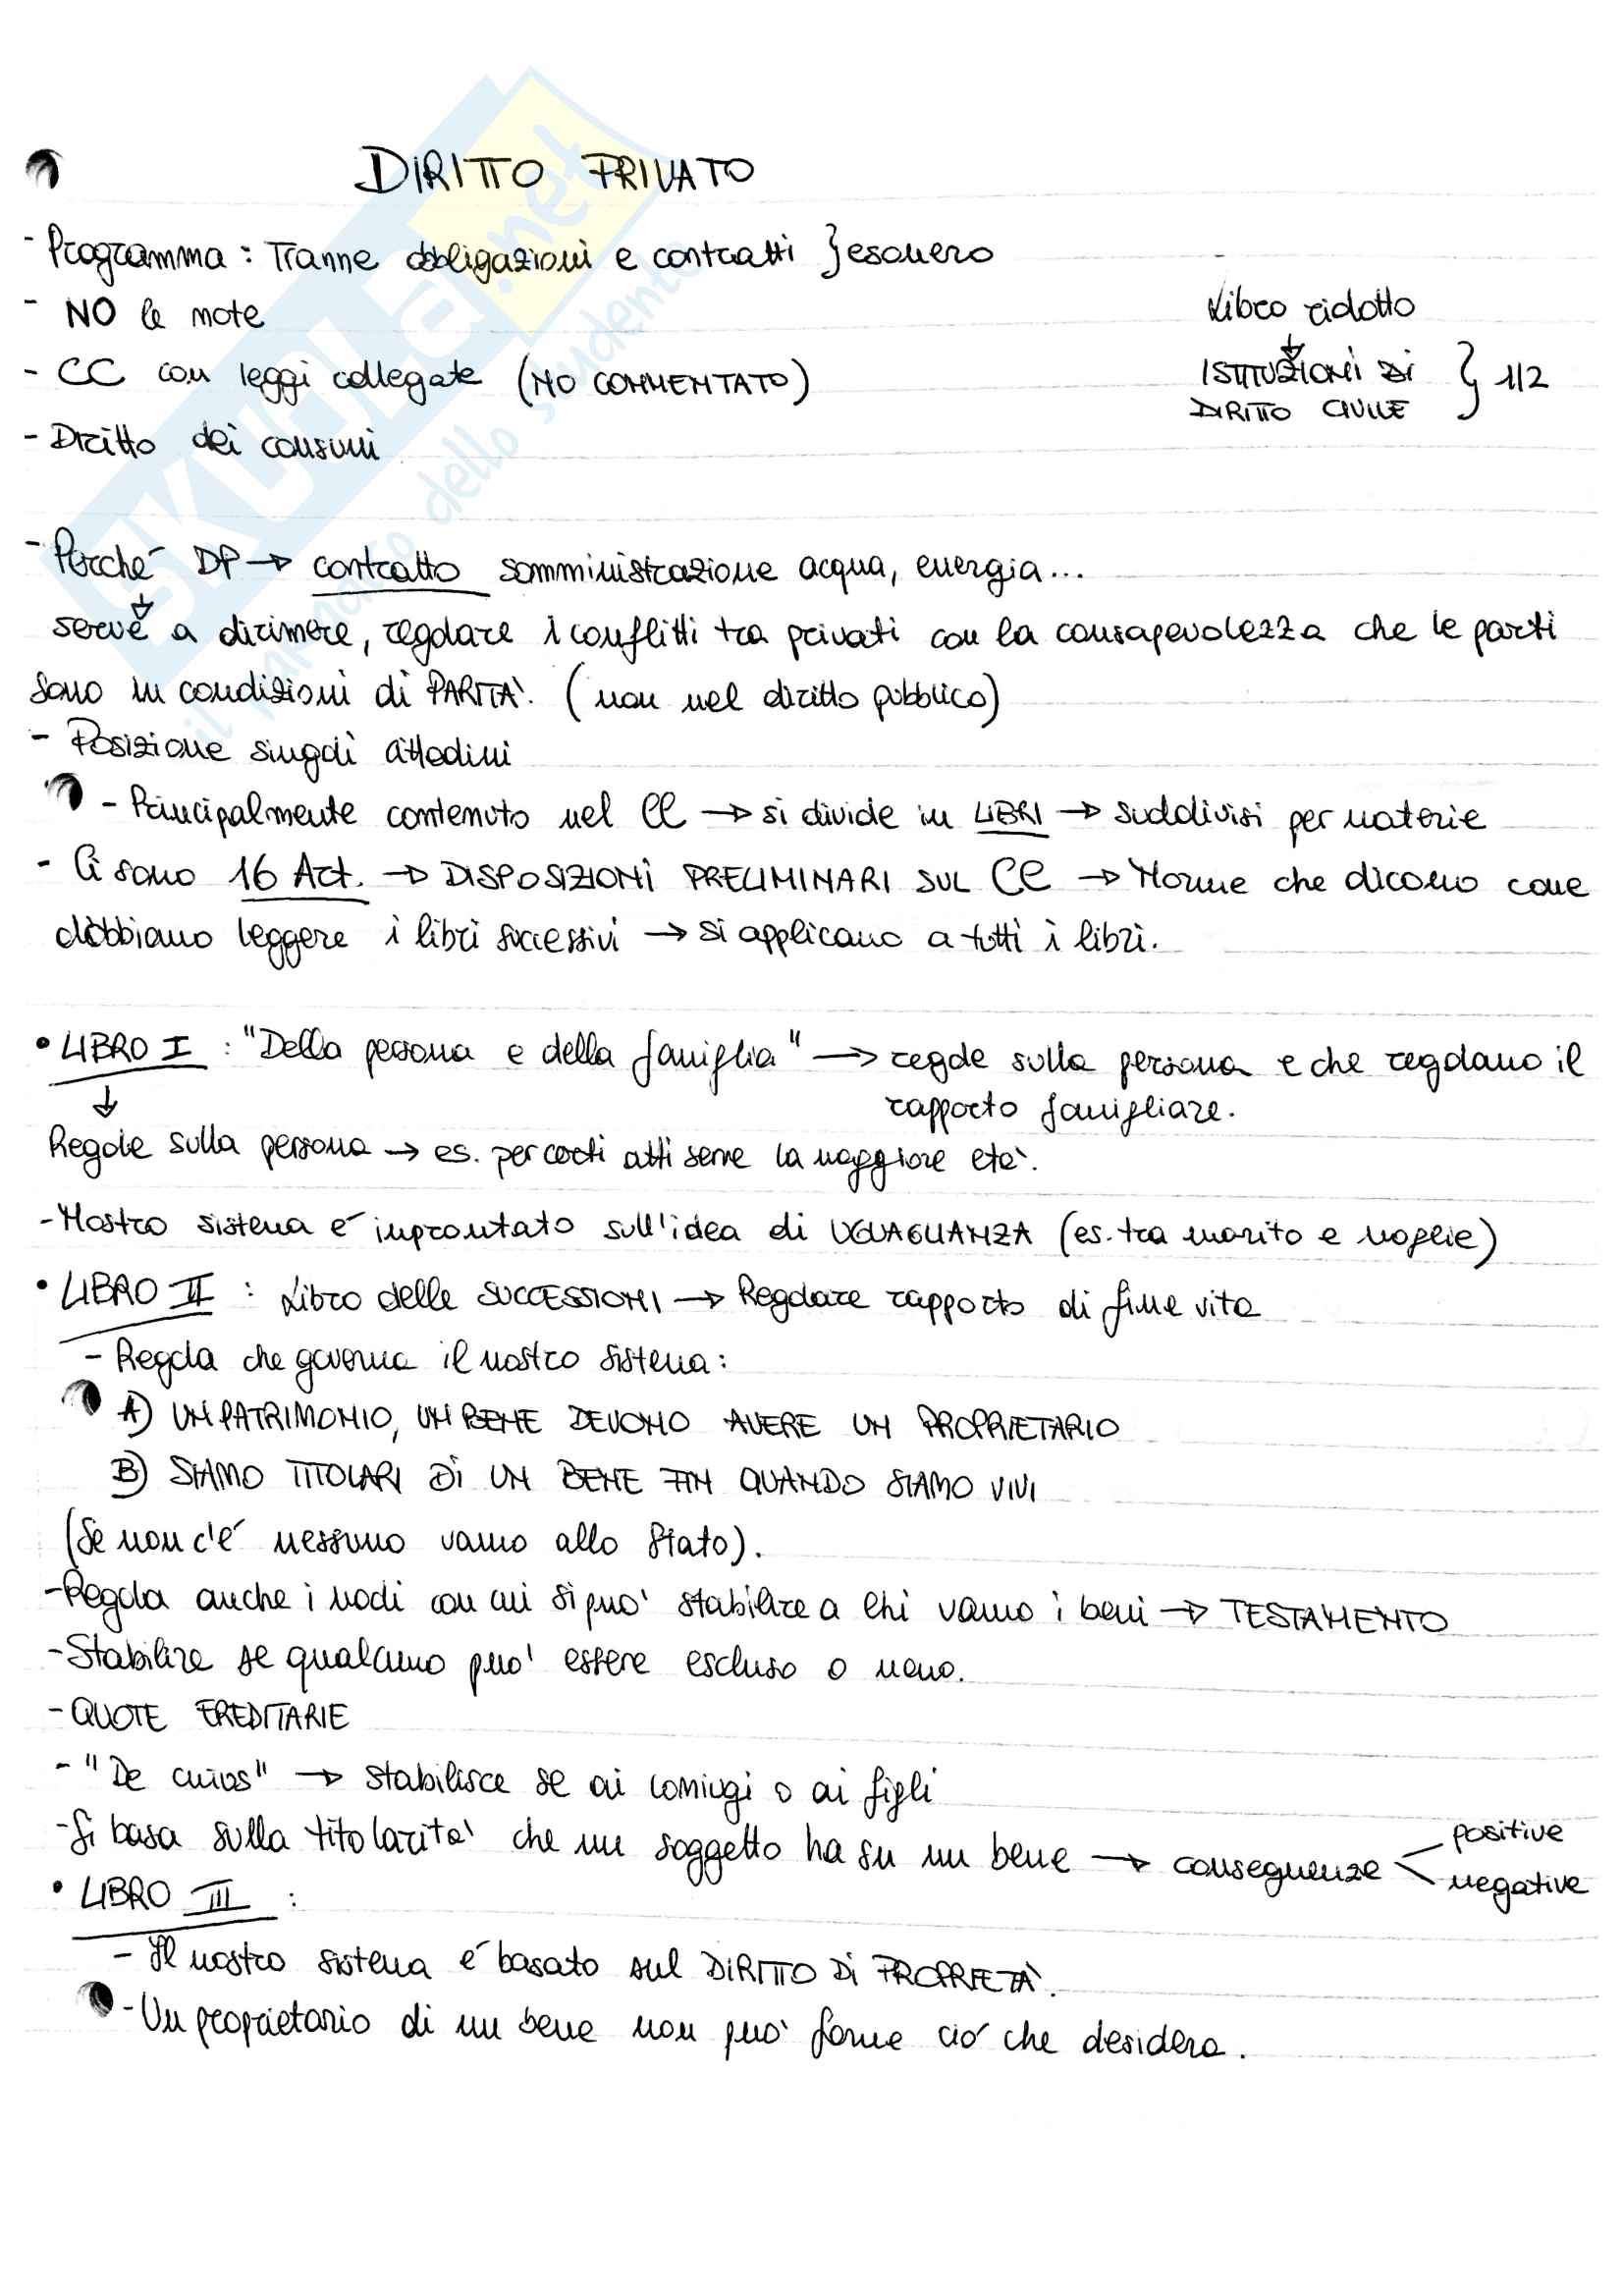 DIRITTO PRIVATO
- Programma : Tranne obbligazioni e contratti } esonero
- NO le note
Libro ridotto
↓
- CC con leggi collegate (NO COMMENTATO)
ISTITUZIONI DI
DIRITTO CIVILE } 1/2
- Diritto dei consumi
- Perché DP → contratto somministrazione acqua, energia...
↓
serve a dirimere, regolare i conflitti tra privati con la consapevolezza che le parti
sono in condizioni di PARITA'. (non nel diritto pubblico)
- Posizione singoli cittadini
- Principalmente contenuto nel CC → si divide in LIBRI → suddivisi per materie
- Ci sono 16 Art. → DISPOSIZIONI PRELIMINARI SUL CC → Norme che dicono come
dobbiamo leggere i libri successivi → si applicano a tutti i libri.
• LIBRO I : "Della persona e della famiglia" → regole sulla persona e che regolano il
rapporto famigliare.
↓
Regole sulla persona → es. per certi atti serve la maggiore età.
- Nostro sistema é improntato sull'idea di UGUAGLIANZA (es. tra marito e moglie)
• LIBRO II : Libro delle SUCCESSIONI → Regolare rapporto di fine vita
- Regola che governa il nostro sistema :
A) UN PATRIMONIO, UN BENE DEVONO AVERE UN PROPRIETARIO
B) SIAMO TITOLARI DI UN BENE FIN QUANDO SIAMO VIVI
(Se non c'é nessuno vanno allo Stato).
- Regola anche i modi con cui si può stabilire a chi vanno i beni → TESTAMENTO
- Stabilire se qualcuno può essere escluso o meno.
- QUOTE EREDITARIE
- "De cuius" → stabilisce se ai coniugi o ai figli
- Si basa sulla titolarità che un soggetto ha su un bene → conseguenze
positive
negative
• LIBRO III :
- Il nostro sistema é basato sul DIRITTO DI PROPRIETÀ.
- Un proprietario di un bene non può farne ció che desidera.
SKUOLA.net
il dello studente